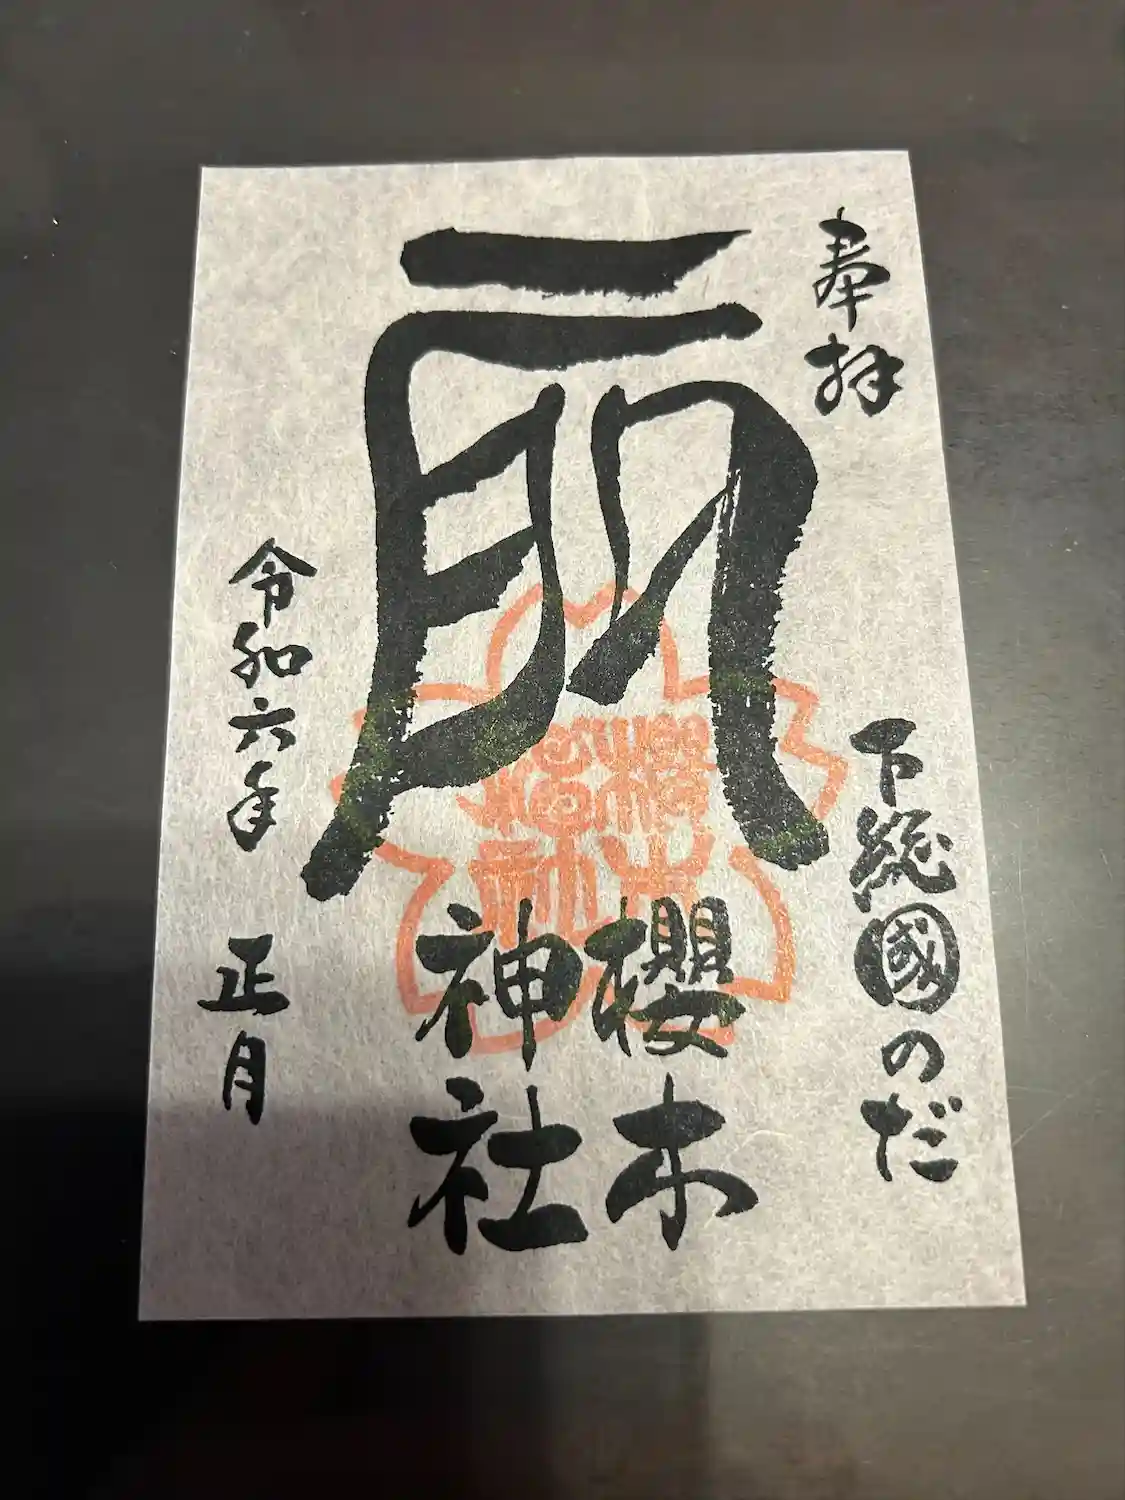 奉拝
下総國のだ
櫻木
神社
令和六年 正月